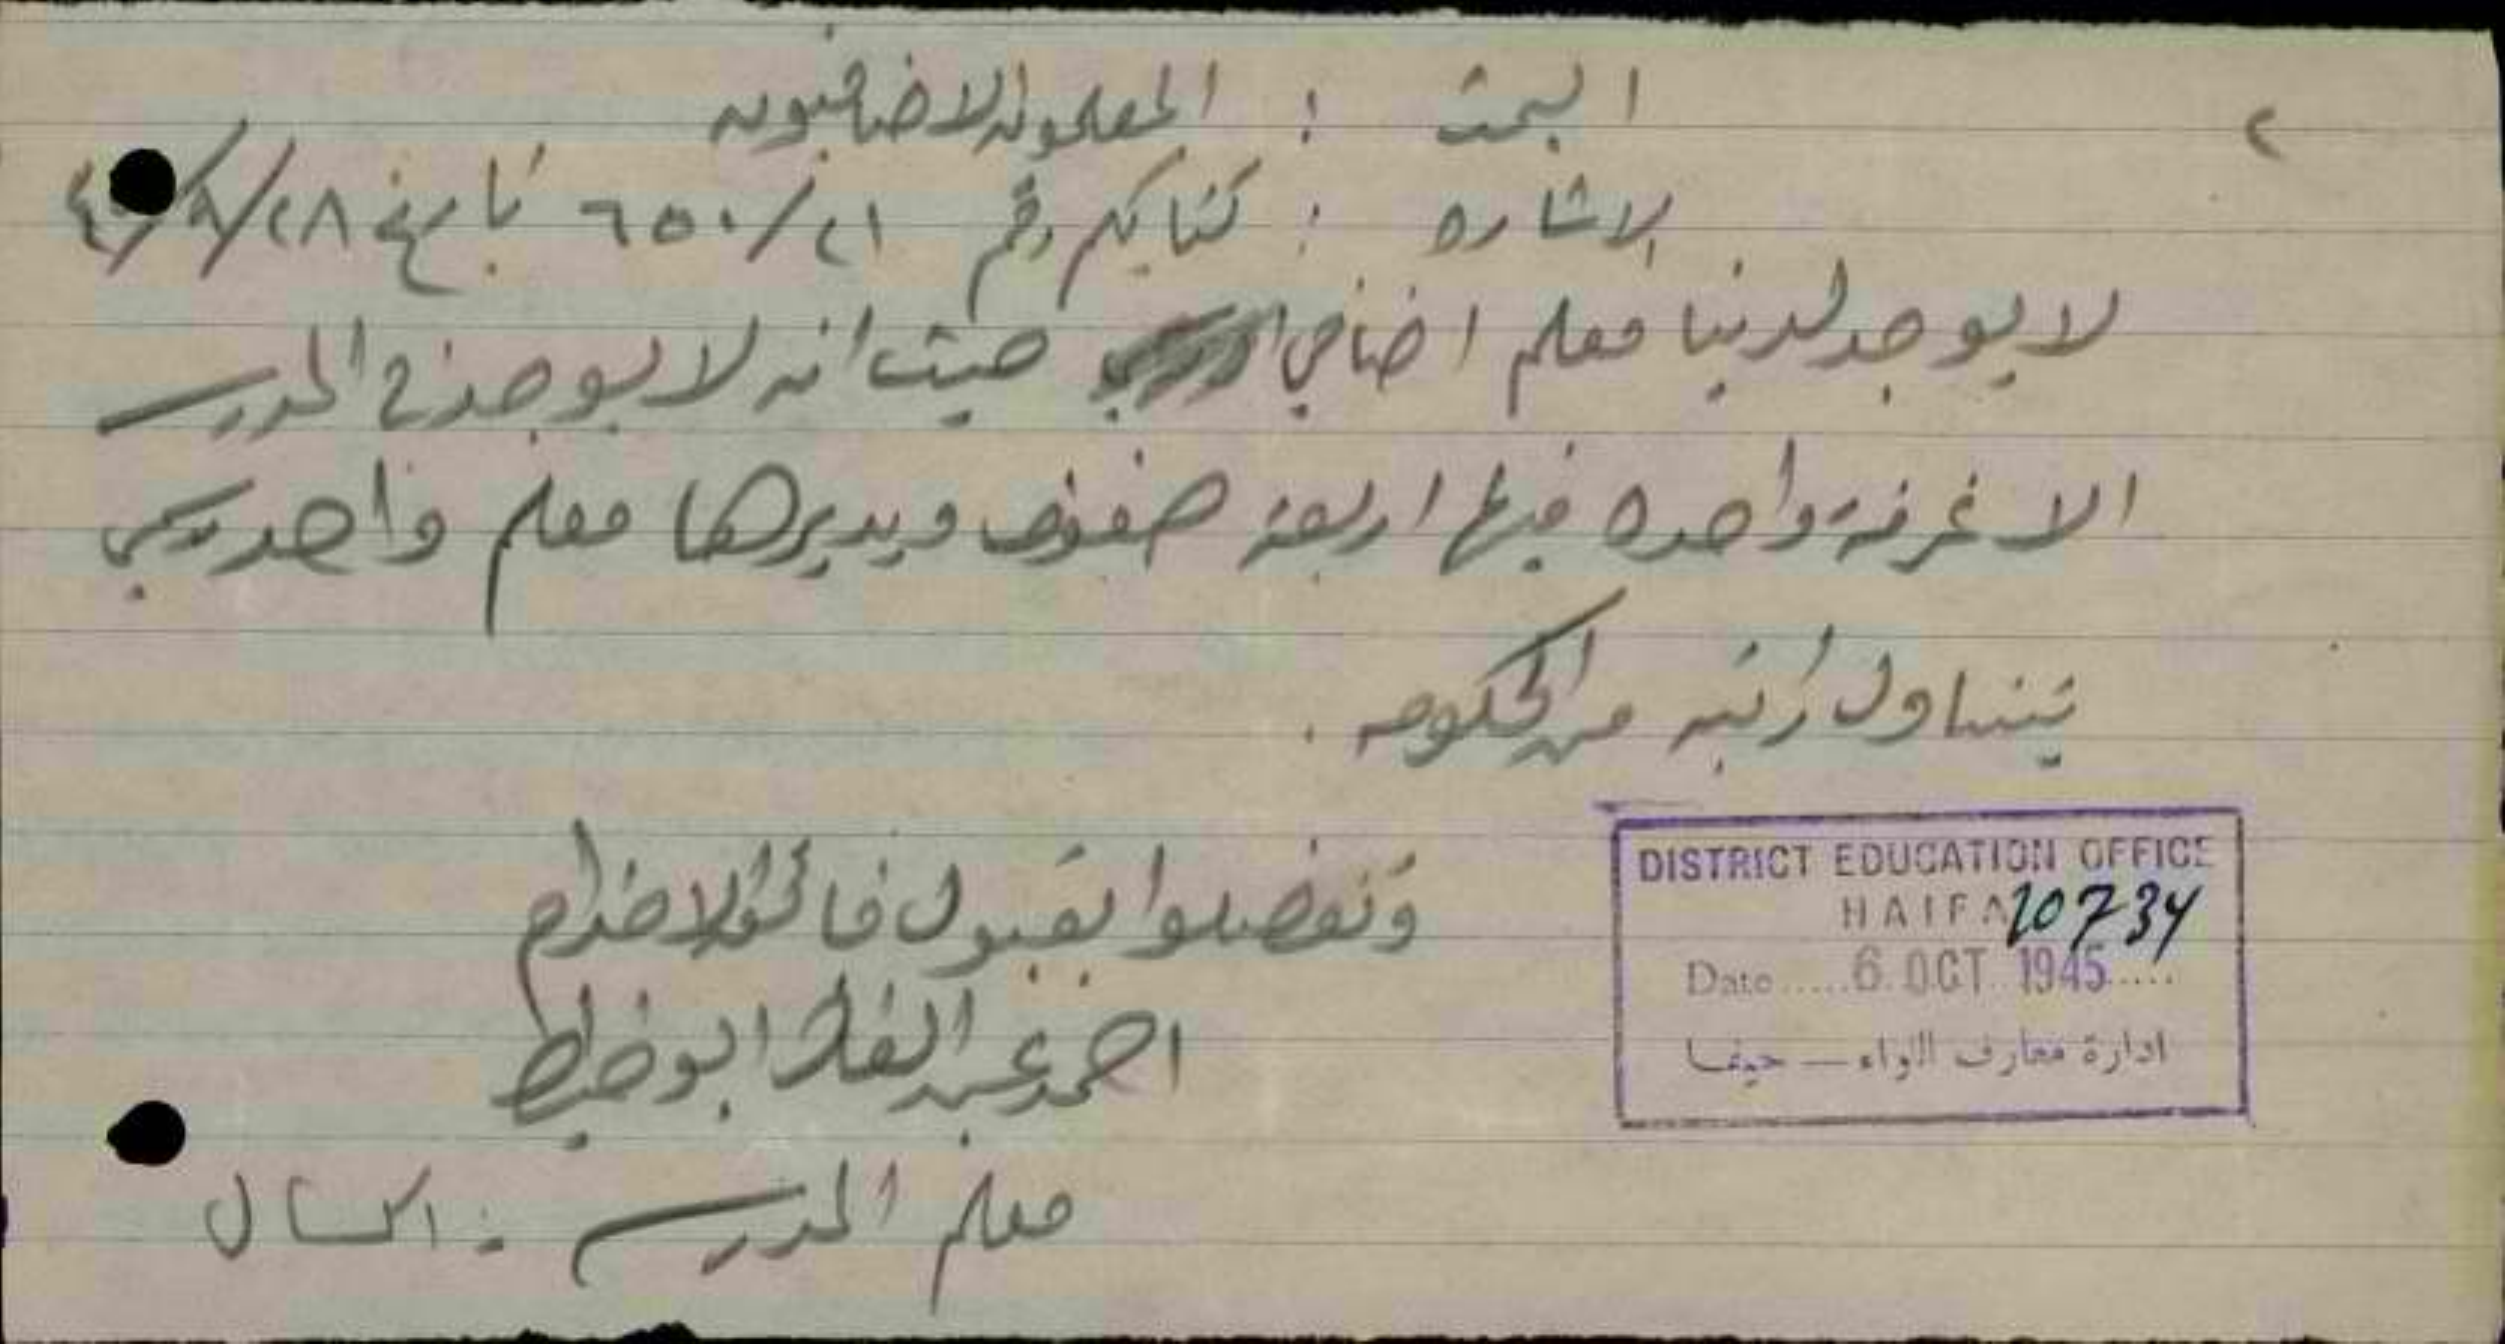 ٢
البحث : المعلمون الاضافيون
الاشاره : كتابكم رقم ٦٥٠/٢١ تاريخ ٢٨/٩/٤٥
لا يوجد لدينا معلم اضافي حيث انه لا يوجد في المدرسه
الا غرفة واحده فيها اربعة صفوف ويديرها معلم واحد رسمي
يتناول راتبه من الحكومه .
وتفضلوا بقبول فائق الاحترام
احمد عبد الفتاح ابو خيط
معلم المدرسه : اكسال
DISTRICT EDUCATION OFFICE
HAIFA 10734
Date.....6. OCT. 1945.....
ادارة معارف اللواء — حيفا